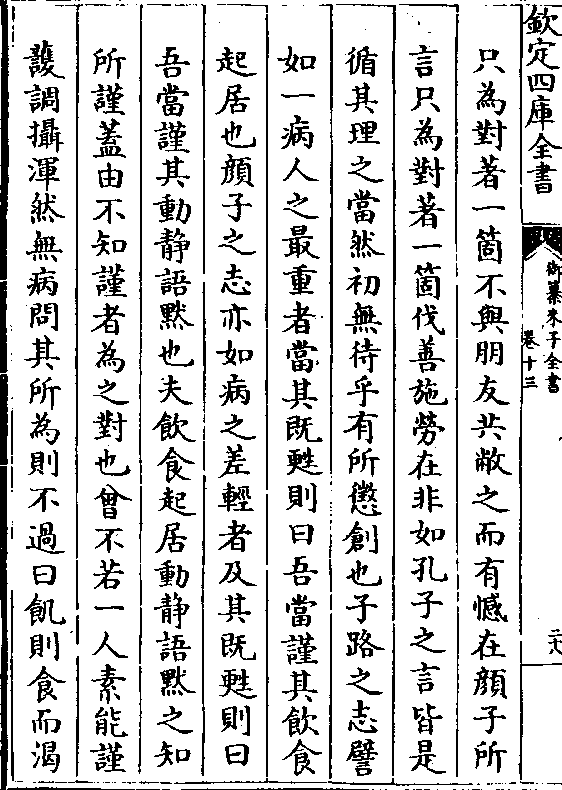 欽定四庫全書
御纂朱子全書
卷十三
二十八
只為對著一箇不與朋友共敝之而有憾在顔子所
言只為對著一箇伐善施勞在非如孔子之言皆是
循其理之當然初無待乎有所懲創也子路之志譬
如一病人之最重者當其既甦則曰吾當謹其飲食
起居也顔子之志亦如病之差輕者及其既甦則曰
吾當謹其動靜語默也夫飲食起居動靜語默之知
所謹蓋由不知謹者為之對也曾不若一人素能謹
護調攝渾然無病問其所為則不過曰飢則食而渴